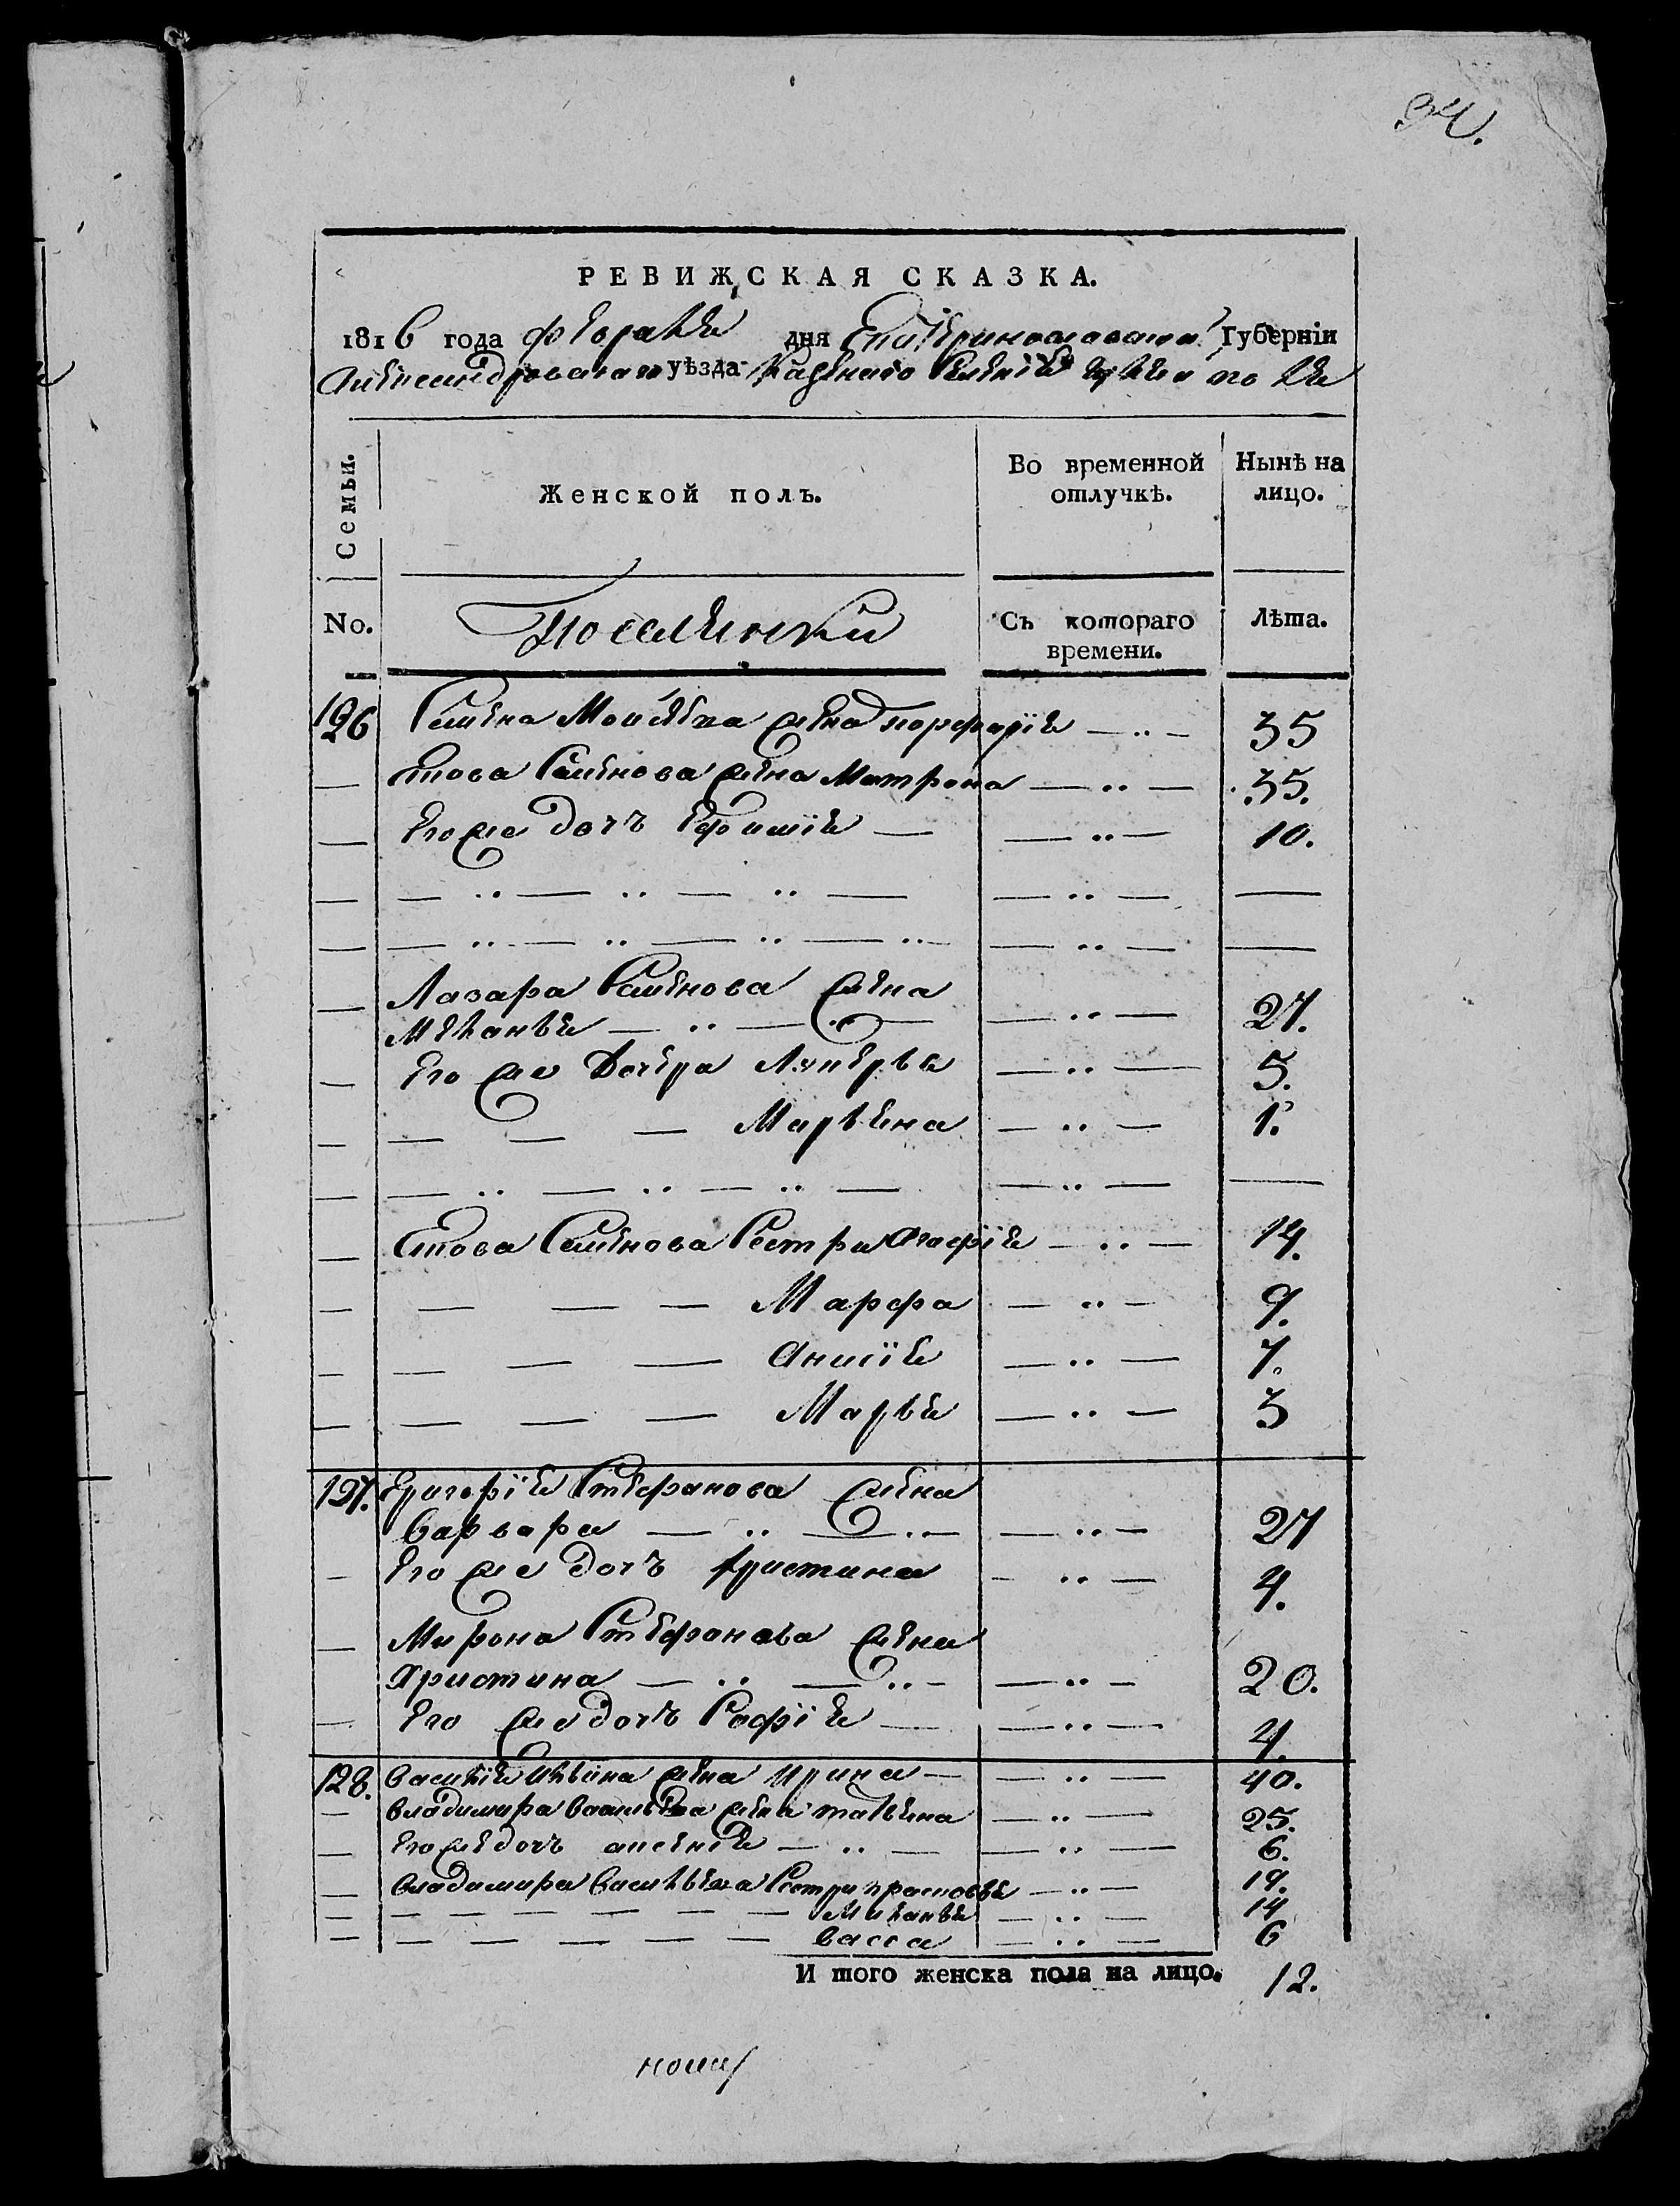 34.
РЕВИЖСКАЯ СКАЗКА.
1816 года февраля дня Екатеринославской Губерніи
Александровскаго уѣзда Казеннаго Селенія
Семьи.
Женской полъ.
Во временной отлучкѣ.
Нынѣ на лицо.
No.
Поселянки
Съ котораго времени.
Лѣта.
126 Семена Моисѣева жена порфирія — „ — 35
Семенова жена Матрона — „ — 35.
Его же дочь Ефимія — — „ — 10.
Лазара Семенова жена
Меланья — „ — „ — — „ — 27.
Его же Дочери Лукерья — „ — 5.
— — — Марьяна — „ — 1.
Семенова Сестры Агафія — „ — 14.
— — — Марфа — „ — 9.
— — — Анисія — „ — 7.
— — — Марья — „ — 3
127. Григорія Стефанова жена
Варвара — „ — „ — — „ — 27
Его же дочь Христина — „ — 4.
Мирона Стефанова жена
Христина — „ — „ — — „ — 20.
Его же дочь Софія — — „ — 4.
128. Василія Ильина жена Ирина — — „ — 40.
Владимира Васильева жена татьяна — „ — 25.
Его же дочь ксенія — „ — — „ — 6.
Владимира Васильева Сестры прасковья — „ — 19.
— — — — — — Миланья — „ — 14
— — — — — — Васса — „ — 6
И того женска пола на лицо. 12.